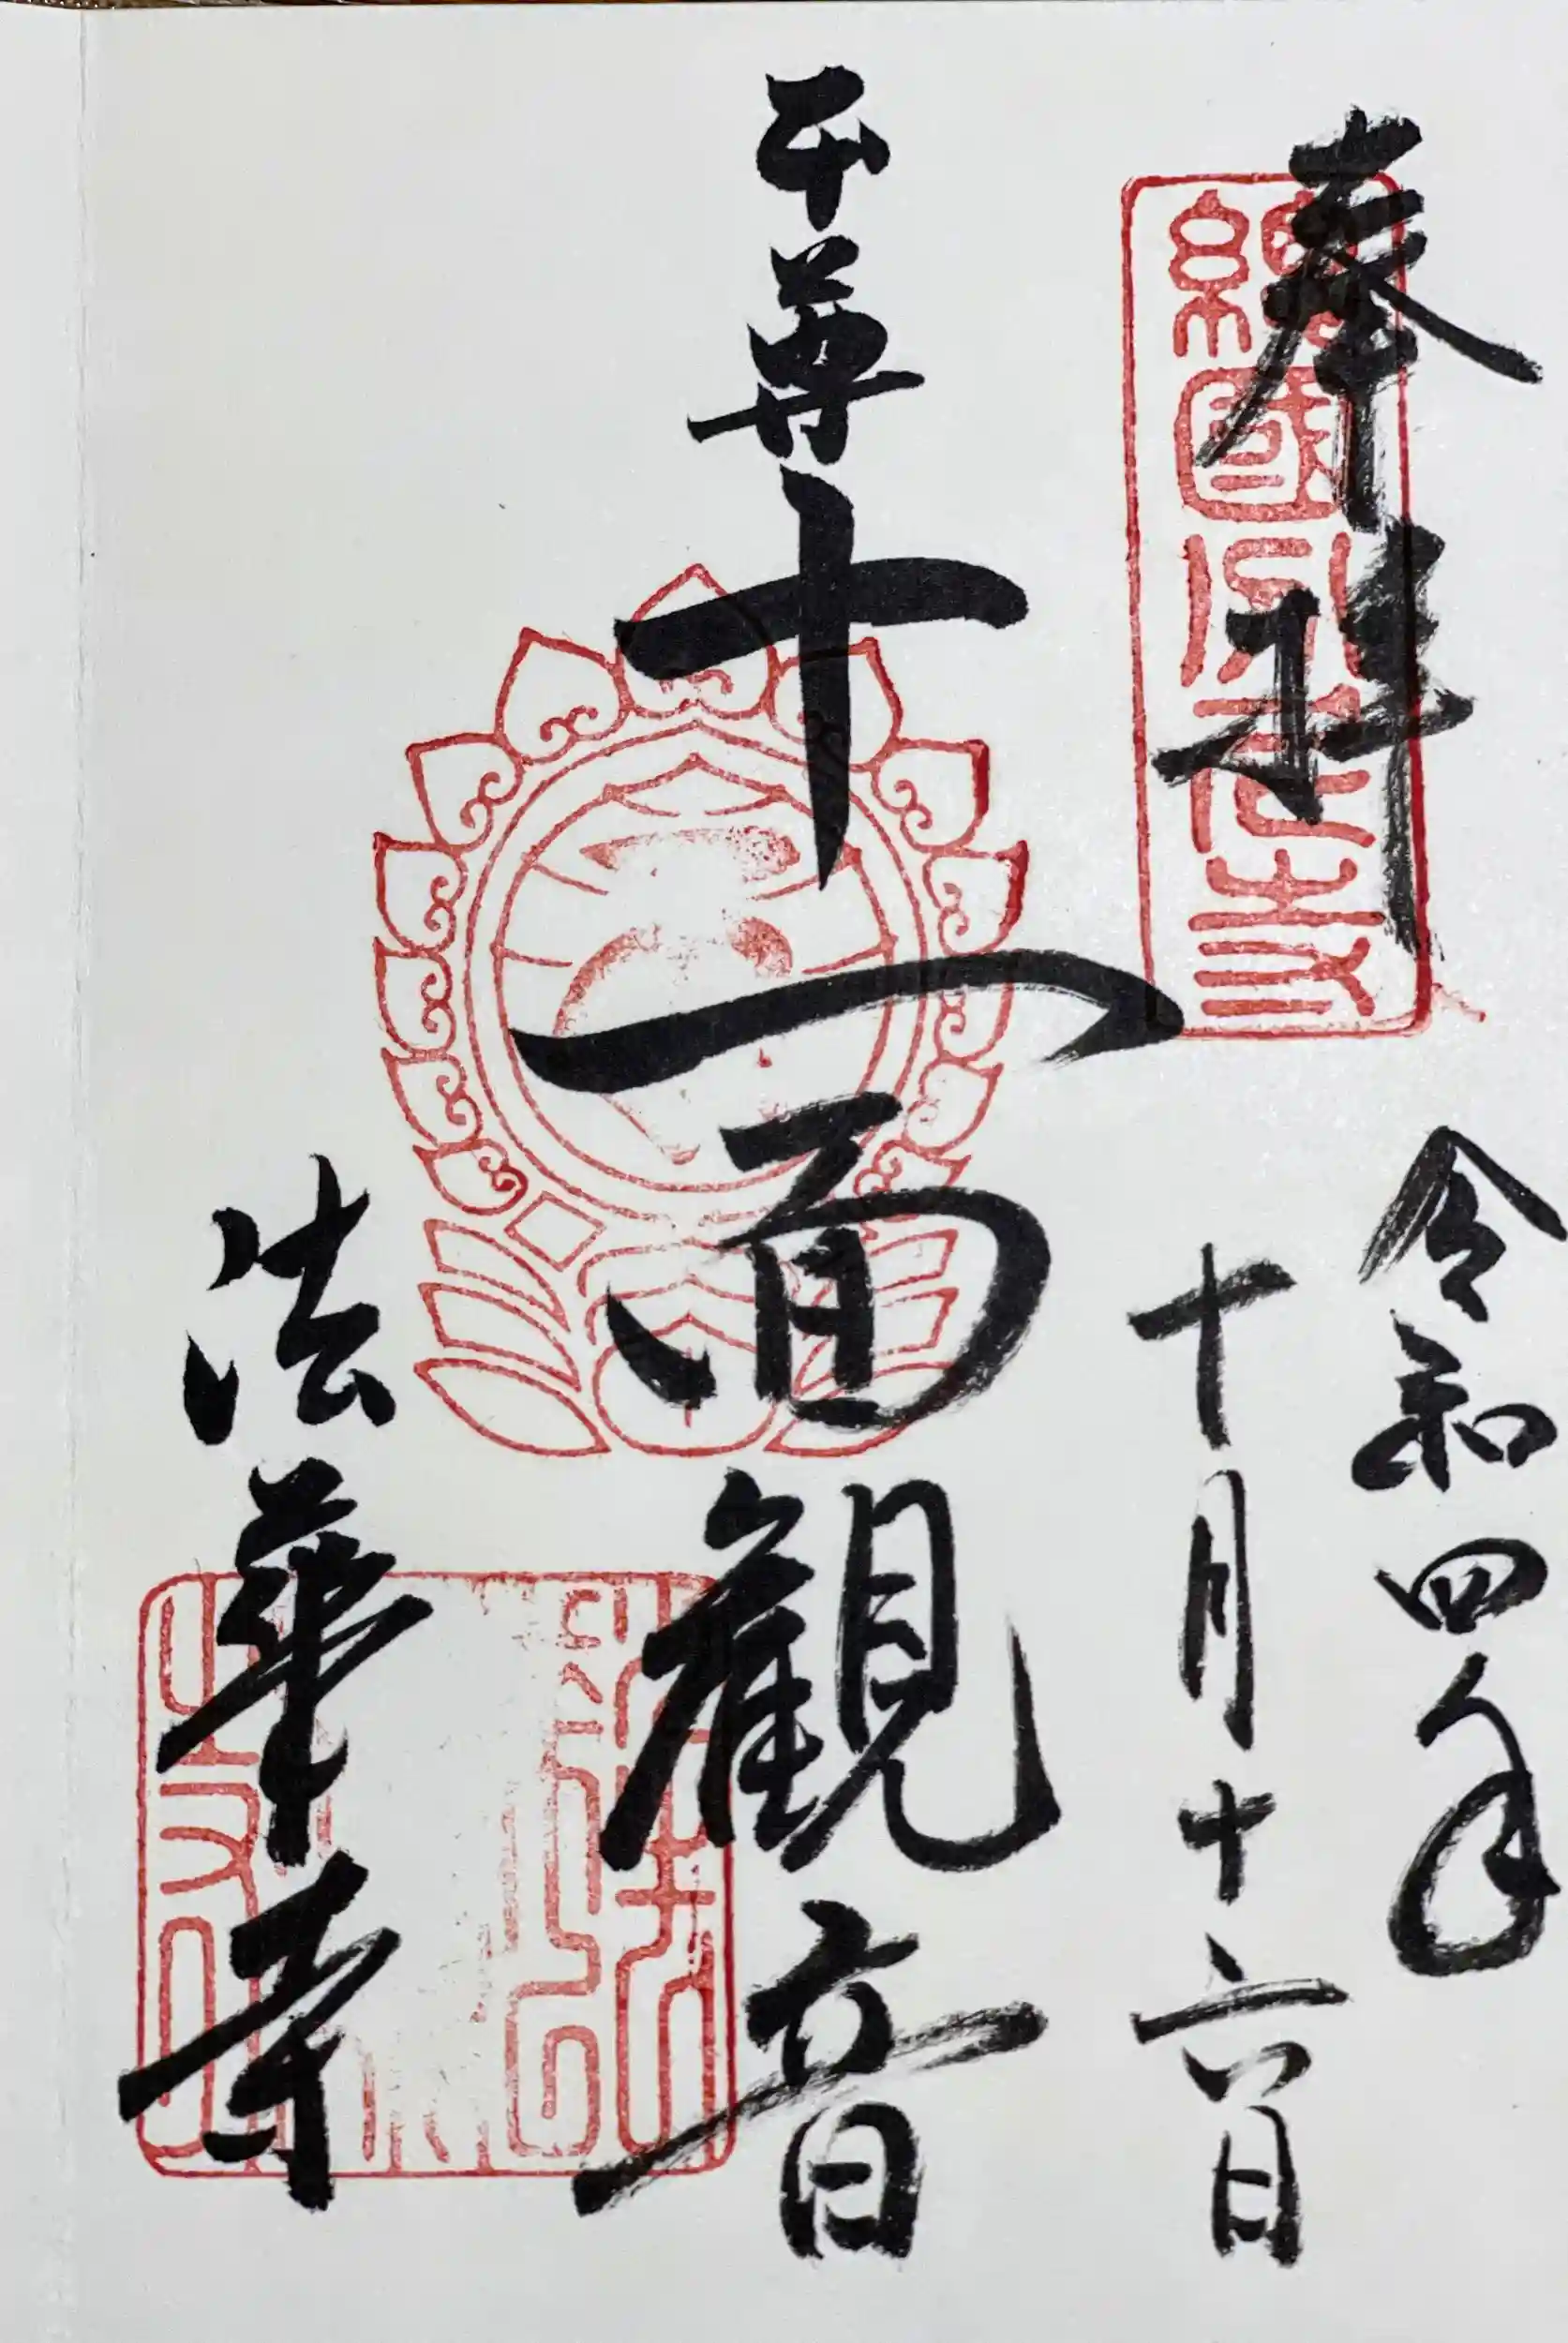 奉拝
總國分尼寺
令和四年
十月十六日
本尊十一面觀音
法華寺